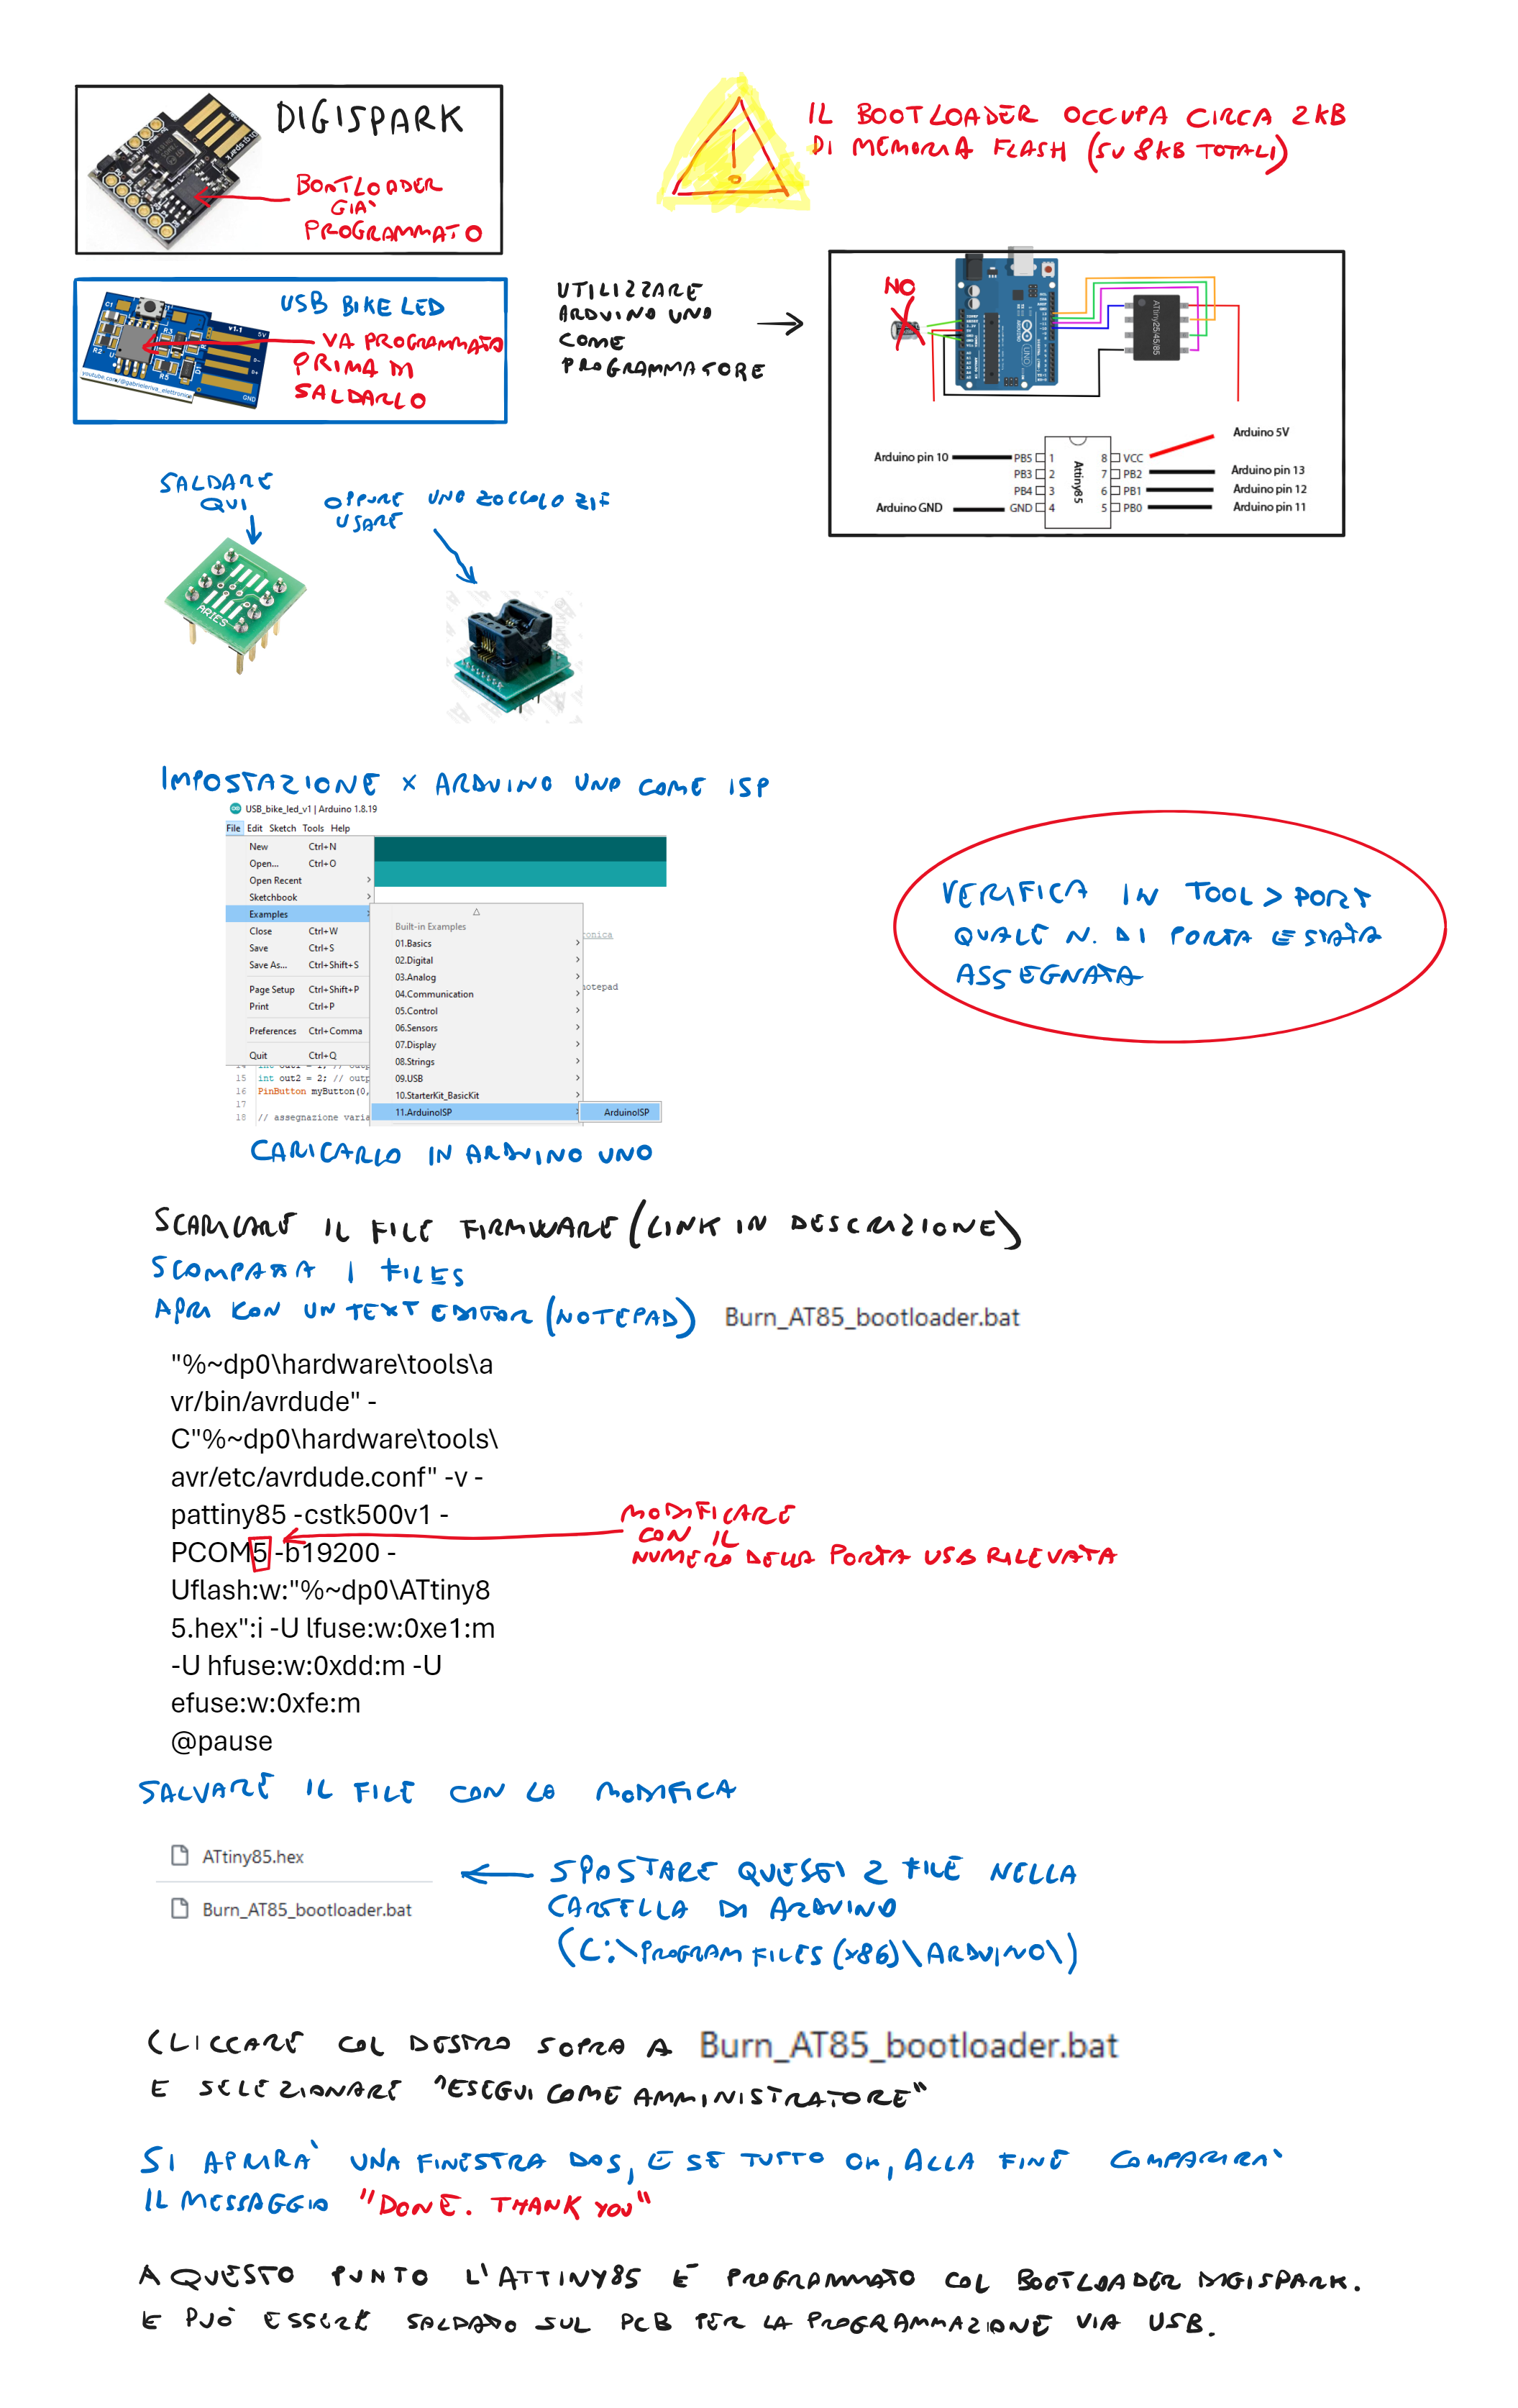 DIGISPARK
BOOTLOADER
GIA'
PROGRAMMATO
IL BOOTLOADER OCCUPA CIRCA 2KB
DI MEMORIA FLASH (SU 8KB TOTALI)
USB BIKE LED
VA PROGRAMMATO
PRIMA DI
SALDARLO
C1
R2
R3
R5
D1
v1.1
5V
D-
D+
GND
youtube.com/@gabrieleriva_elettronica
UTILIZZARE
ARDUINO UNO
COME
PROGRAMMATORE
NO
UNO
ATtiny25/45/85
Arduino 5V
Arduino pin 10
PB5 1
8 VCC
PB3 2
7 PB2
Arduino pin 13
PB4 3
6 PB1
Arduino pin 12
Arduino GND
GND 4
5 PB0
Arduino pin 11
Attiny85
SALDARE
QUI
OPPURE UNO ZOCCOLO ZIF
USARE
ARIES
IMPOSTAZIONE X ARDUINO UNO COME ISP
USB_bike_led_v1 | Arduino 1.8.19
File Edit Sketch Tools Help
New Ctrl+N
Open... Ctrl+O
Open Recent
Sketchbook
Examples
Close Ctrl+W
Save Ctrl+S
Save As... Ctrl+Shift+S
Page Setup Ctrl+Shift+P
Print Ctrl+P
Preferences Ctrl+Comma
Quit Ctrl+Q
Built-in Examples
01.Basics
02.Digital
03.Analog
04.Communication
05.Control
06.Sensors
07.Display
08.Strings
09.USB
10.StarterKit_BasicKit
11.ArduinoISP
ArduinoISP
ronica
notepad
15 int out2 = 2; // outp
16 PinButton myButton(0,
17
18 // assegnazione varia
CARICARLO IN ARDUINO UNO
VERIFICA IN TOOL > PORT
QUALE N. DI PORTA E STATA
ASSEGNATA
SCARICARE IL FILE FIRMWARE (LINK IN DESCRIZIONE)
SCOMPATTA I FILES
APRI KON UN TEXT EDITOR (NOTEPAD) Burn_AT85_bootloader.bat
"%~dp0\hardware\tools\a
vr/bin/avrdude" -
C"%~dp0\hardware\tools\
avr/etc/avrdude.conf" -v -
pattiny85 -cstk500v1 -
PCOM5 -b19200 -
Uflash:w:"%~dp0\ATtiny8
5.hex":i -U lfuse:w:0xe1:m
-U hfuse:w:0xdd:m -U
efuse:w:0xfe:m
@pause
MODIFICARE
CON IL
NUMERO DELLA PORTA USB RILEVATA
SALVARE IL FILE CON LA MODIFICA
ATtiny85.hex
Burn_AT85_bootloader.bat
SPOSTARE QUESTI 2 FILE NELLA
CARTELLA DI ARDUINO
(C:\PROGRAM FILES (x86)\ARDUINO\)
CLICCARE COL DESTRO SOPRA A Burn_AT85_bootloader.bat
E SELEZIONARE "ESEGUI COME AMMINISTRATORE"
SI APRIRA' UNA FINESTRA DOS, E SE TUTTO OK, ALLA FINE COMPARIRA'
IL MESSAGGIO "DONE. THANK YOU"
A QUESTO PUNTO L'ATTINY85 E PROGRAMMATO COL BOOTLOADER DIGISPARK.
E PUÒ ESSERE SALDATO SUL PCB PER LA PROGRAMMAZIONE VIA USB.